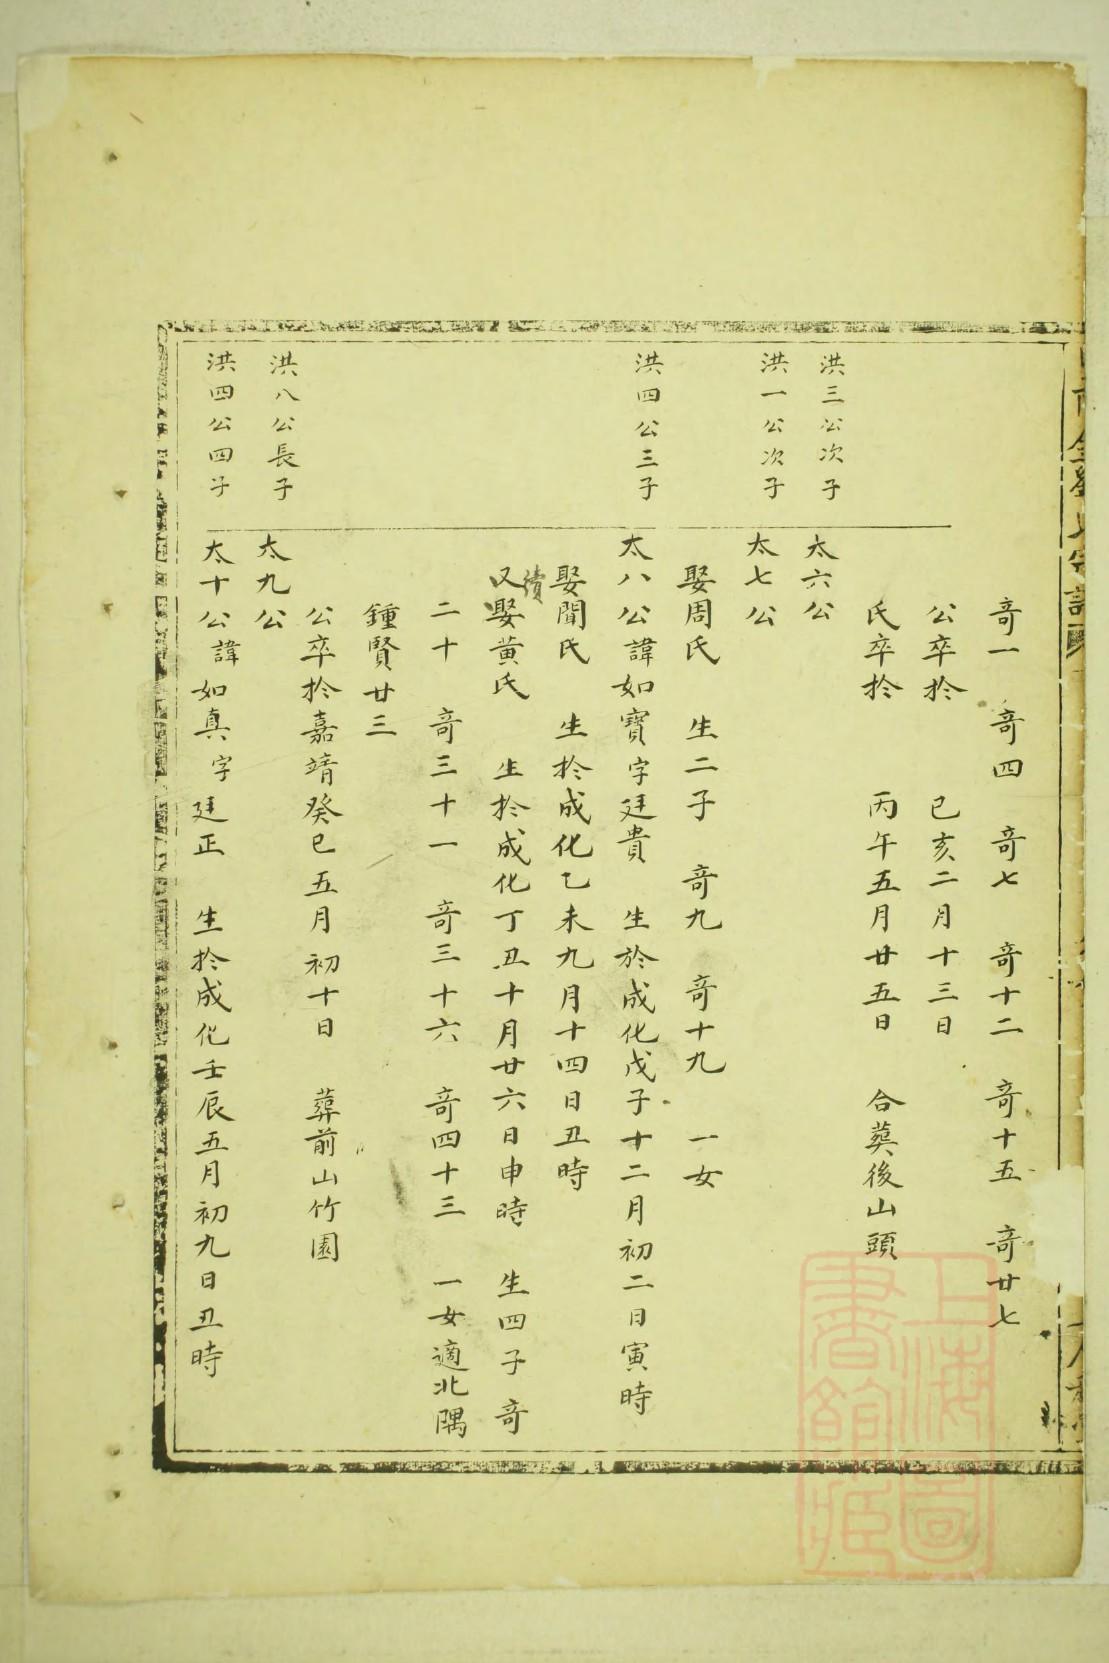 奇一　奇四　奇七　奇十二　奇十五　奇廿七
公卒於　己亥二月十三日
氏卒於　丙午五月廿五日　合葬後山頭
洪三公次子　太六公
洪一公次子　太七公
娶周氏　生二子　奇九　奇十九　一女
洪四公三子　太八公諱如寶字廷貴　生於成化戊子十二月初二日寅時
娶聞氏　生於成化乙未九月十四日丑時
又續娶黃氏　生於成化丁丑十月廿六日申時　生四子奇
二十　奇三十一　奇三十六　奇四十三　一女適北隅
鍾賢廿三
公卒於嘉靖癸巳五月初十日　葬前山竹園
洪八公長子　太九公
洪四公四子　太十公諱如真字廷正　生於成化壬辰五月初九日丑時
上海圖
書館藏